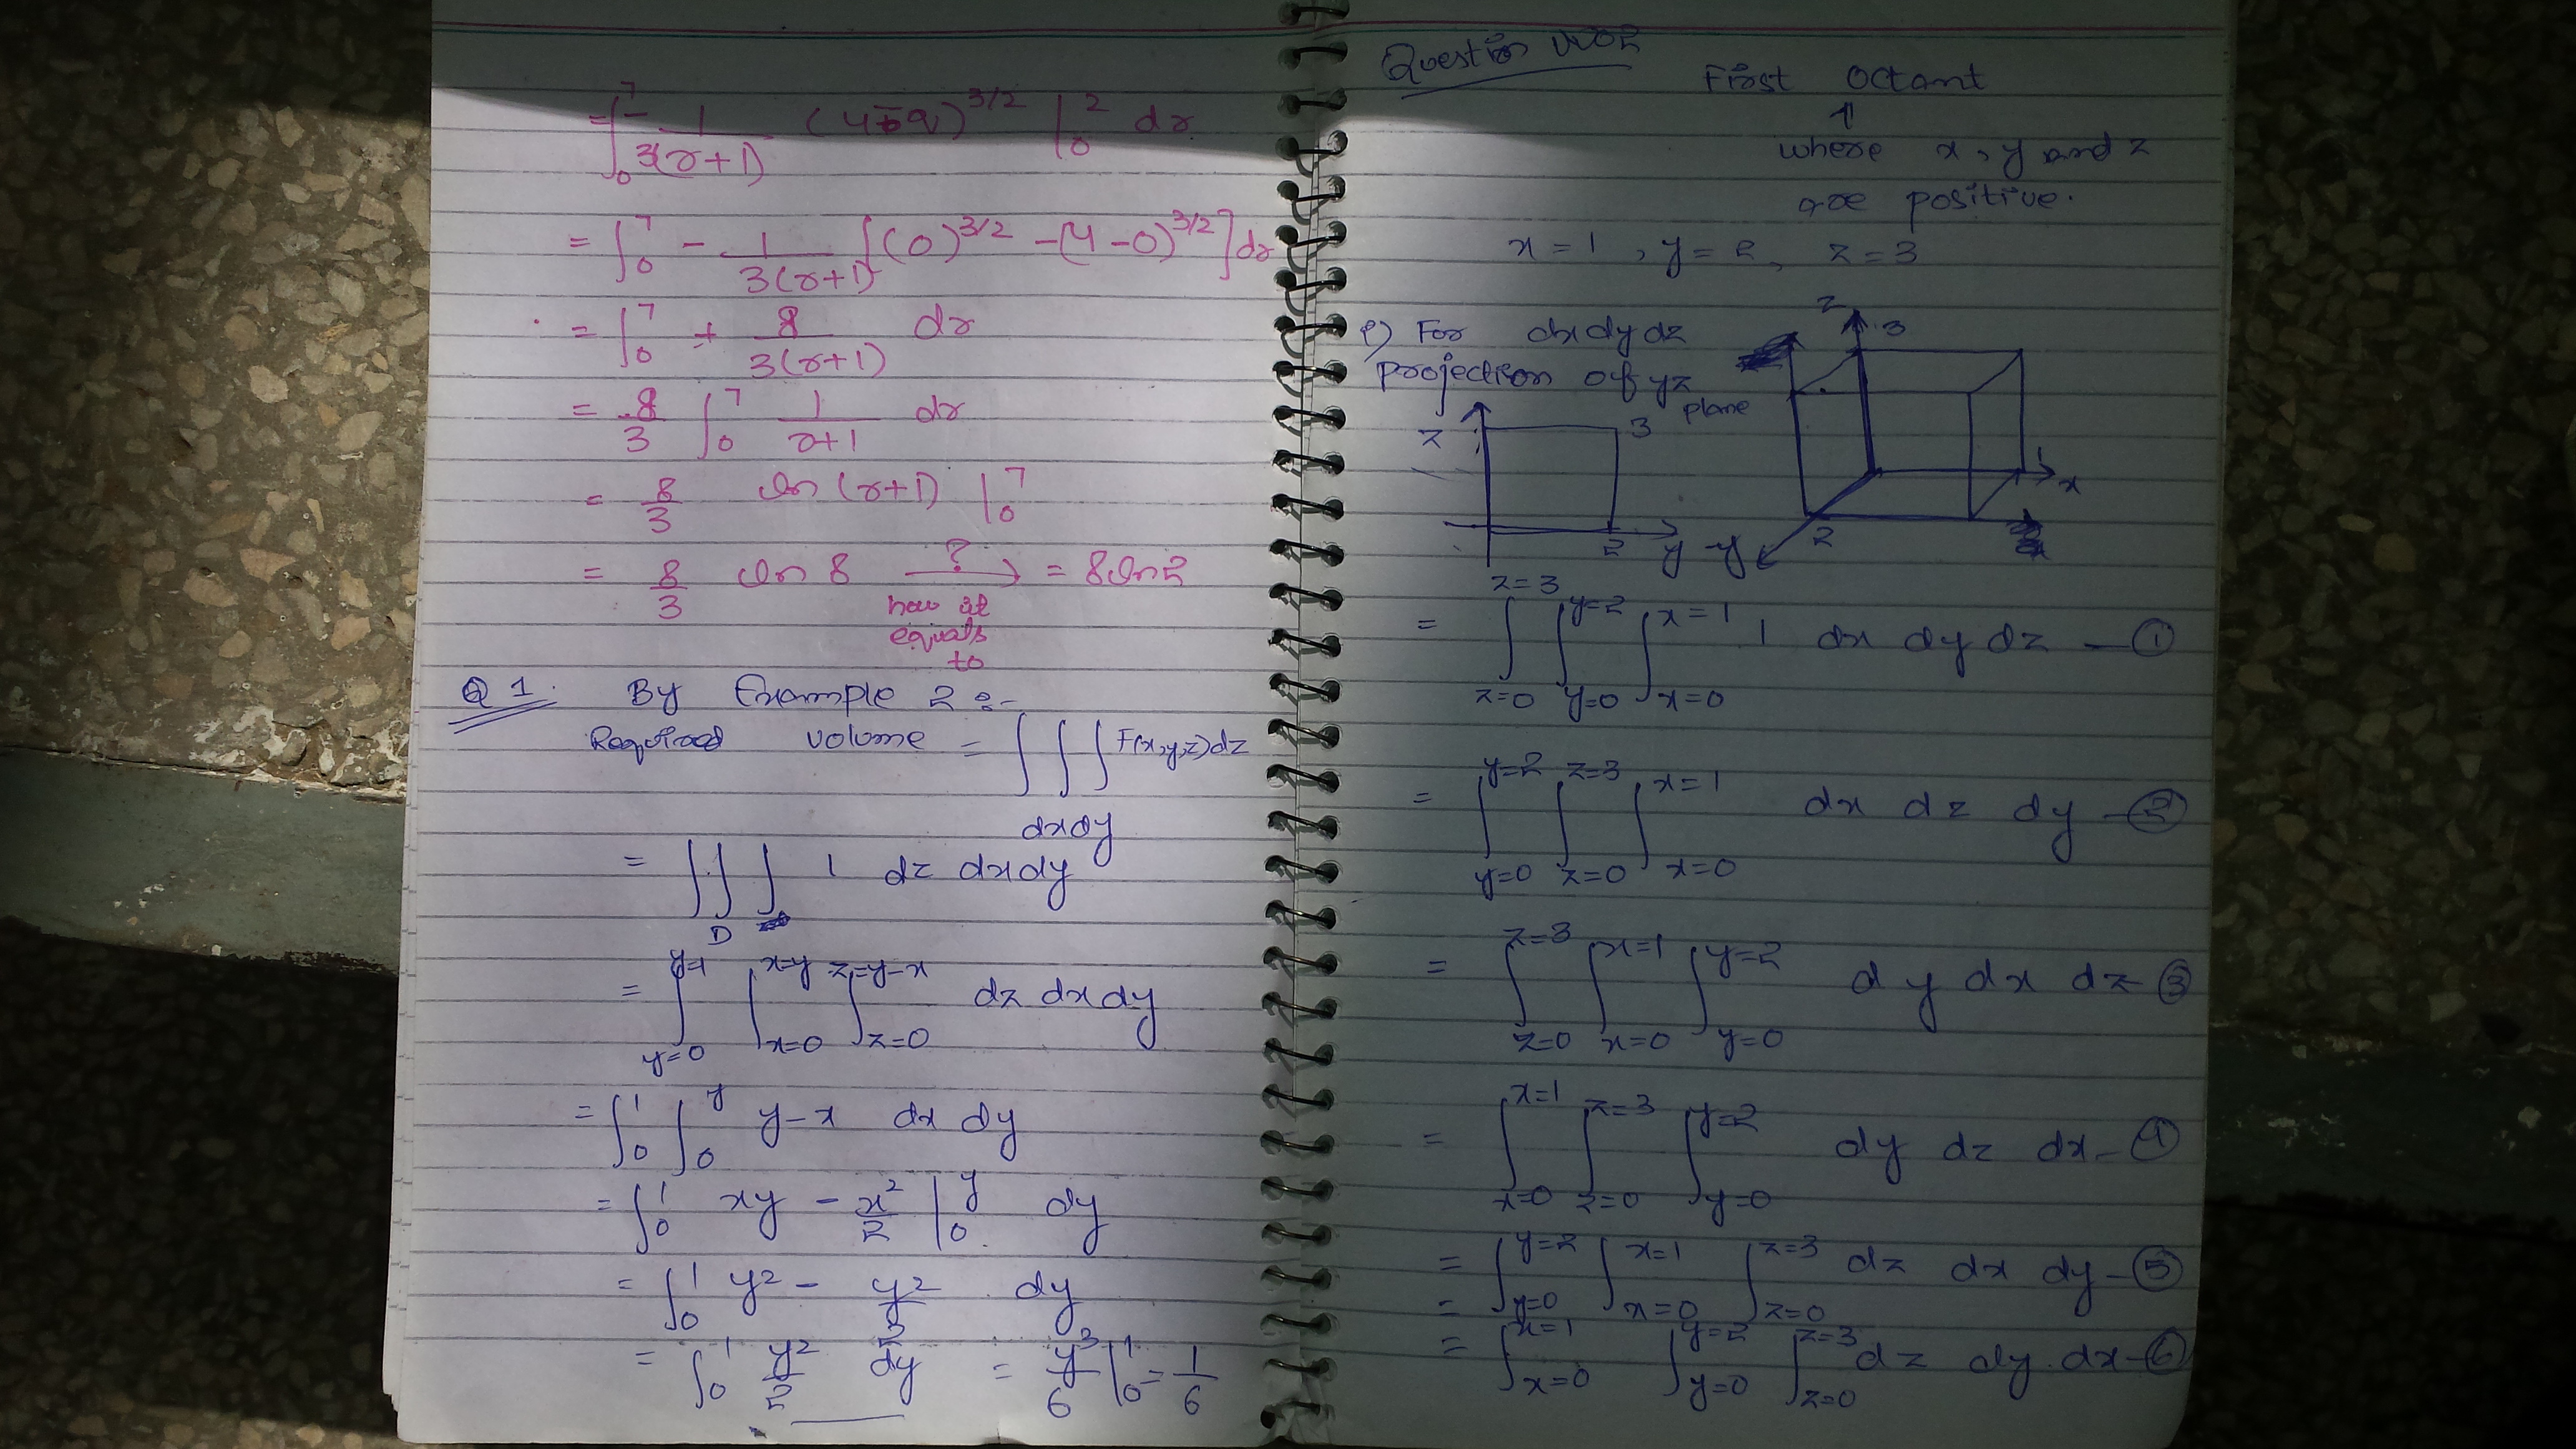 = ∫₀⁷ - 1/3(r+1) (4-q)^3/2 |₀² dr
= ∫₀⁷ - 1/3(r+1) [(0)^3/2 - (4-0)^3/2] dr
= ∫₀⁷ + 8/3(r+1) dr
= 8/3 ∫₀⁷ 1/r+1 dr
= 8/3 ln (r+1) |₀⁷
= 8/3 ln 8 ? → = 8 ln 2
how it
equals
to
Q 1. By Example 2 :-
Required volume = ∫ ∫ ∫ F(x,y,z) dz
dx dy
= ∫∫∫ 1 dz dx dy
D
= ∫_{y=0}^{y=1} ∫_{x=0}^{x=y} ∫_{z=0}^{z=y-x} dz dx dy
= ∫₀¹ ∫₀^y y-x dx dy
= ∫₀¹ xy - x²/2 |₀^y dy
= ∫₀¹ y² - y²/2 dy
= ∫₀¹ y²/2 dy = y³/6 |₀¹ = 1/6
Question NO2
First Octant
⇑
where x, y and z
are positive.
x = 1, y = 2, z = 3
For dx dy dz
projection of yz
plane
z 3
2 y
z 3
x
2
y
= ∫_{z=0}^{z=3} ∫_{y=0}^{y=2} ∫_{x=0}^{x=1} 1 dx dy dz — ①
= ∫_{y=0}^{y=2} ∫_{z=0}^{z=3} ∫_{x=0}^{x=1} dx dz dy — ②
= ∫_{z=0}^{z=3} ∫_{x=0}^{x=1} ∫_{y=0}^{y=2} dy dx dz — ③
= ∫_{x=0}^{x=1} ∫_{z=0}^{z=3} ∫_{y=0}^{y=2} dy dz dx — ④
= ∫_{y=0}^{y=2} ∫_{x=0}^{x=1} ∫_{z=0}^{z=3} dz dx dy — ⑤
= ∫_{x=0}^{x=1} ∫_{y=0}^{y=2} ∫_{z=0}^{z=3} dz dy dx — ⑥